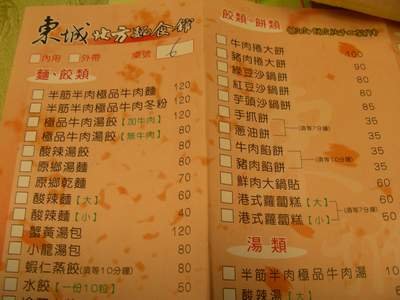 東城北方麵食館
內用 外帶 桌號 6
麵、餃類
半筋半肉極品牛肉麵 120
半筋半肉極品牛肉冬粉 120
極品牛肉湯餃【加牛肉】 120
極品牛肉湯餃【無牛肉】 80
酸辣湯餃 80
原鄉湯麵 80
原鄉乾麵 70
酸辣麵【大】 60
酸辣麵【小】 40
蟹黃湯包 120
小籠湯包 80
蝦仁蒸餃(須等10分鐘) 80
水餃【一份10粒】 50
餃類、餅類
牛肉捲大餅 100
豬肉捲大餅
綠豆沙鍋餅
紅豆沙鍋餅
芋頭沙鍋餅
手抓餅 35
蔥油餅 (須等7分鐘) 35
牛肉餡餅 35
豬肉餡餅 (須等10分鐘) 35
鮮肉大鍋貼 60
港式蘿蔔糕【大】 60
港式蘿蔔糕【小】 (須等7分鐘) 50
湯類
半筋半肉極品牛肉湯
酸辣湯【大】